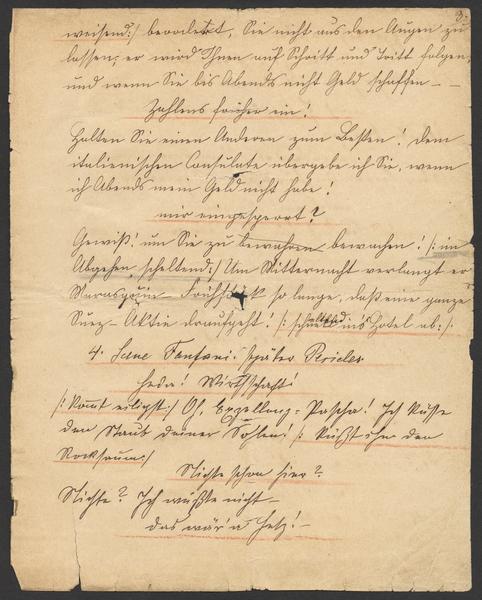 8.
weisend:/ beordert, Sie nicht aus den Augen zu
lassen; er wird Ihnen auf Schritt und Tritt folgen,
und wenn Sie bis Abends nicht Geld schaffen – –
Zahlens früher ein!
Halten Sie einen Anderen zum Besten! Dem
italienischen Consulate übergebe ich Sie, wenn
ich Abends mein Geld nicht habe!
mir eingesperrt?
Gewiß! um Sie zu bewahren bewachen! /: im
Abgehen, scheltend:/ Um Mitternacht verlangt er
Frühstück so lange, daß eine ganze
Suez-Aktie draufgeht! /: scheltend ins Hotel ab:/
4. Scene Fanfani. später Pericles
Heda! Wirthschaft!
/: kommt eiligst:/ Oh, Exzellenz-Pascha! Ich küsse
den Staub deiner Sohlen! /: küßt ihm den
Rocksaum:/
Nichte schon hier?
Nichte? Ich wüßte nicht –
das wär' a Hetz! –